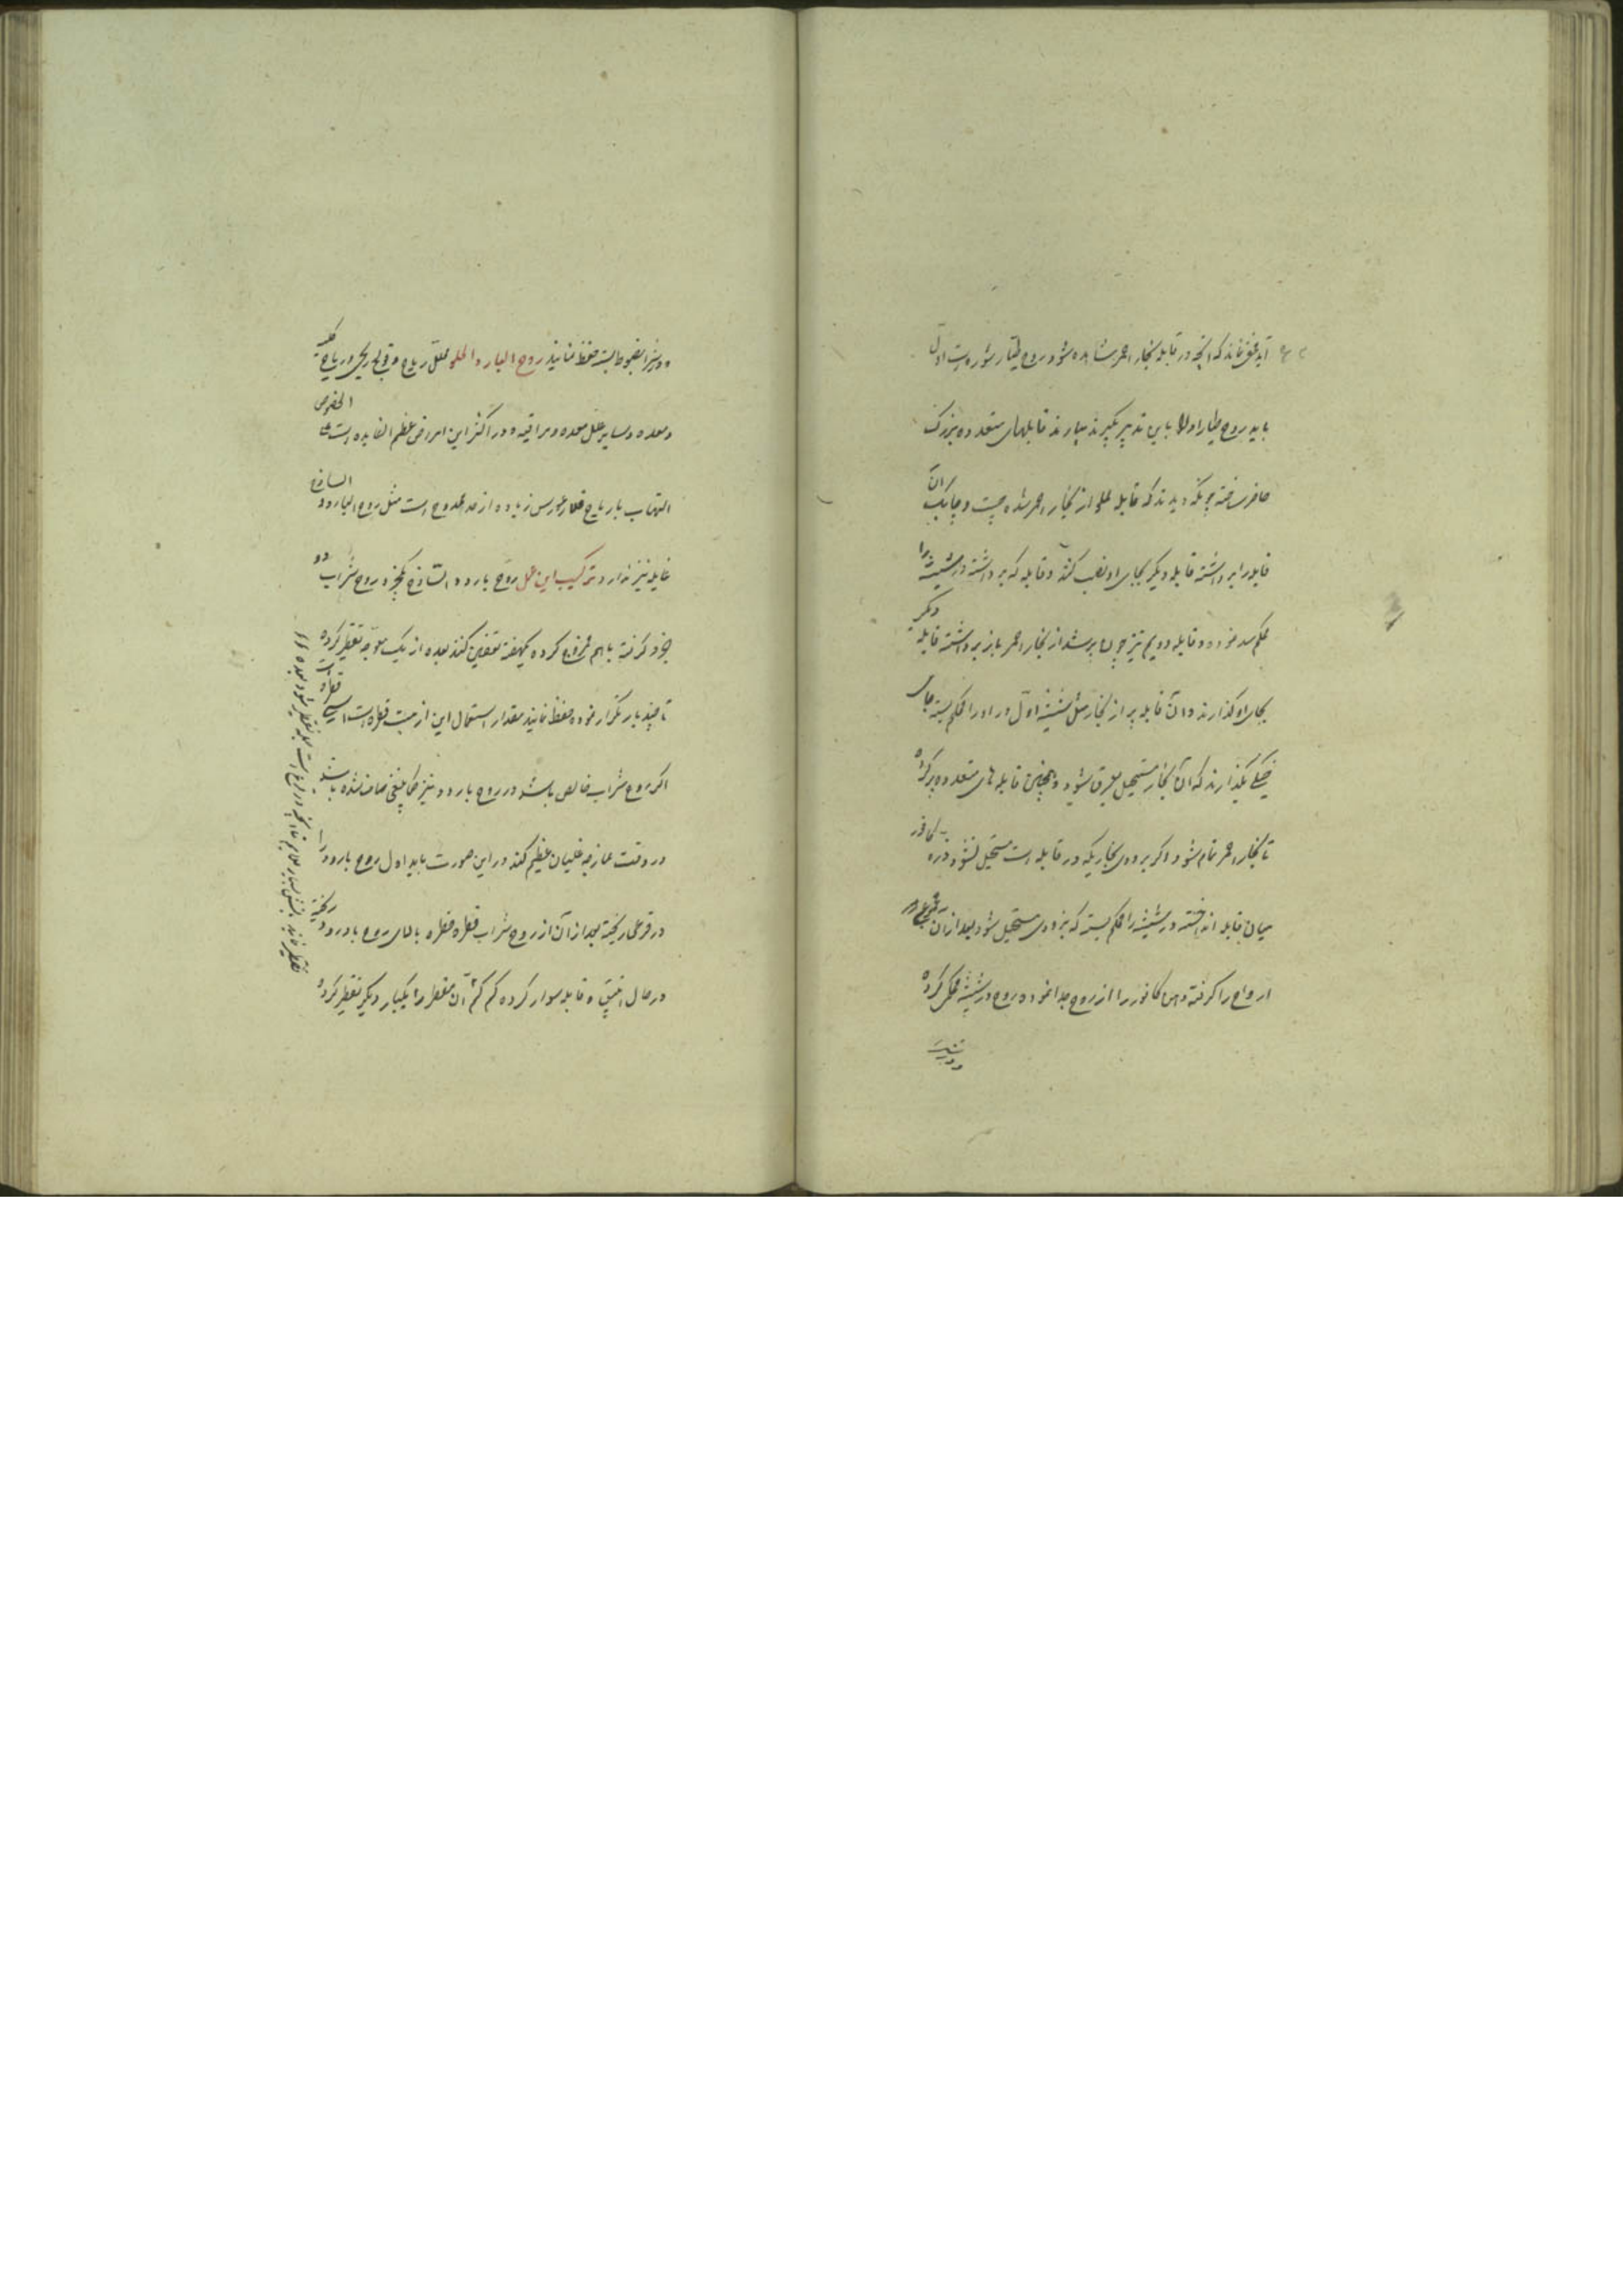 آید مخفی نماند که آنچه در قابله بخار احمر مشاهده شود روح طیار شوره است اول
باید روح طیار اولا باین تدبیر بگیرند بیارند قابلهای متعدده بزرگ
حاضر ساخته چونکه دیدند که قابله مملو از بخار احمر شده چست و چابک آن
قابله را برداشته قابله دیگر بجای او نصب کنند و قابله که برداشته در شیشه را
محکم نموده و قابله دویم نیز چون پر شد از بخار احمر باز برداشته قابله دیگر
بجای او گذارند و آن قابله پر از بخار مثل شیشه اول در او را محکم بسته جای
بگذارند که آن بخار مستحیل بعرق شود و همچنین قابله های متعدده پر کرده
تا بخار احمر تمام شود و اگر بزودی بخاریکه در قابله است مستحیل نشود ذره کافور
میان قابله انداخته در شیشه را محکم بسته که بزودی مستحیل شود بعد از آن
ارواح را گرفته و کافور را از روح جدا نموده روح در شیشه محکم کرده
و در شیشه را مضبوط بسته حفظ نمایند روح البارد الحلو محلل ریاح و قولنج ریحی و ریاح کلیه
و معده و سایر علل معده و مراقیه و در اکثر این امراض عظیم الفایده است علی الخصوص
التهاب با ریاح زیاده از حد ممدوح است مثل روح البارود الساذج
غایله نیز ندارد ترکیب این عمل روح بارود الساذج یکجزو روح شراب دو
جزو گرفته باهم ممزوج کرده یکهفته تعفین کنند بعده از یک معوجه تقطیر کرده
تا چند بار تکرار نموده حفظ نمایند مقدار استعمال این از بیست قطره است الی سی قطره است
اگر روح شراب خالص باشد و روح بارود نیز کما ینبغی صاف شده باشد
در وقت ممازجه غلیان عظیم کند در این صورت باید اول روح بارود را
در قرعی ریخته بعد از آن از روح شراب قطره قطره بالای روح بارود ریخته
در حال انبیق و قابله سوار کرده کم کم آن مقطر را یکبار دیگر تقطیر کرده